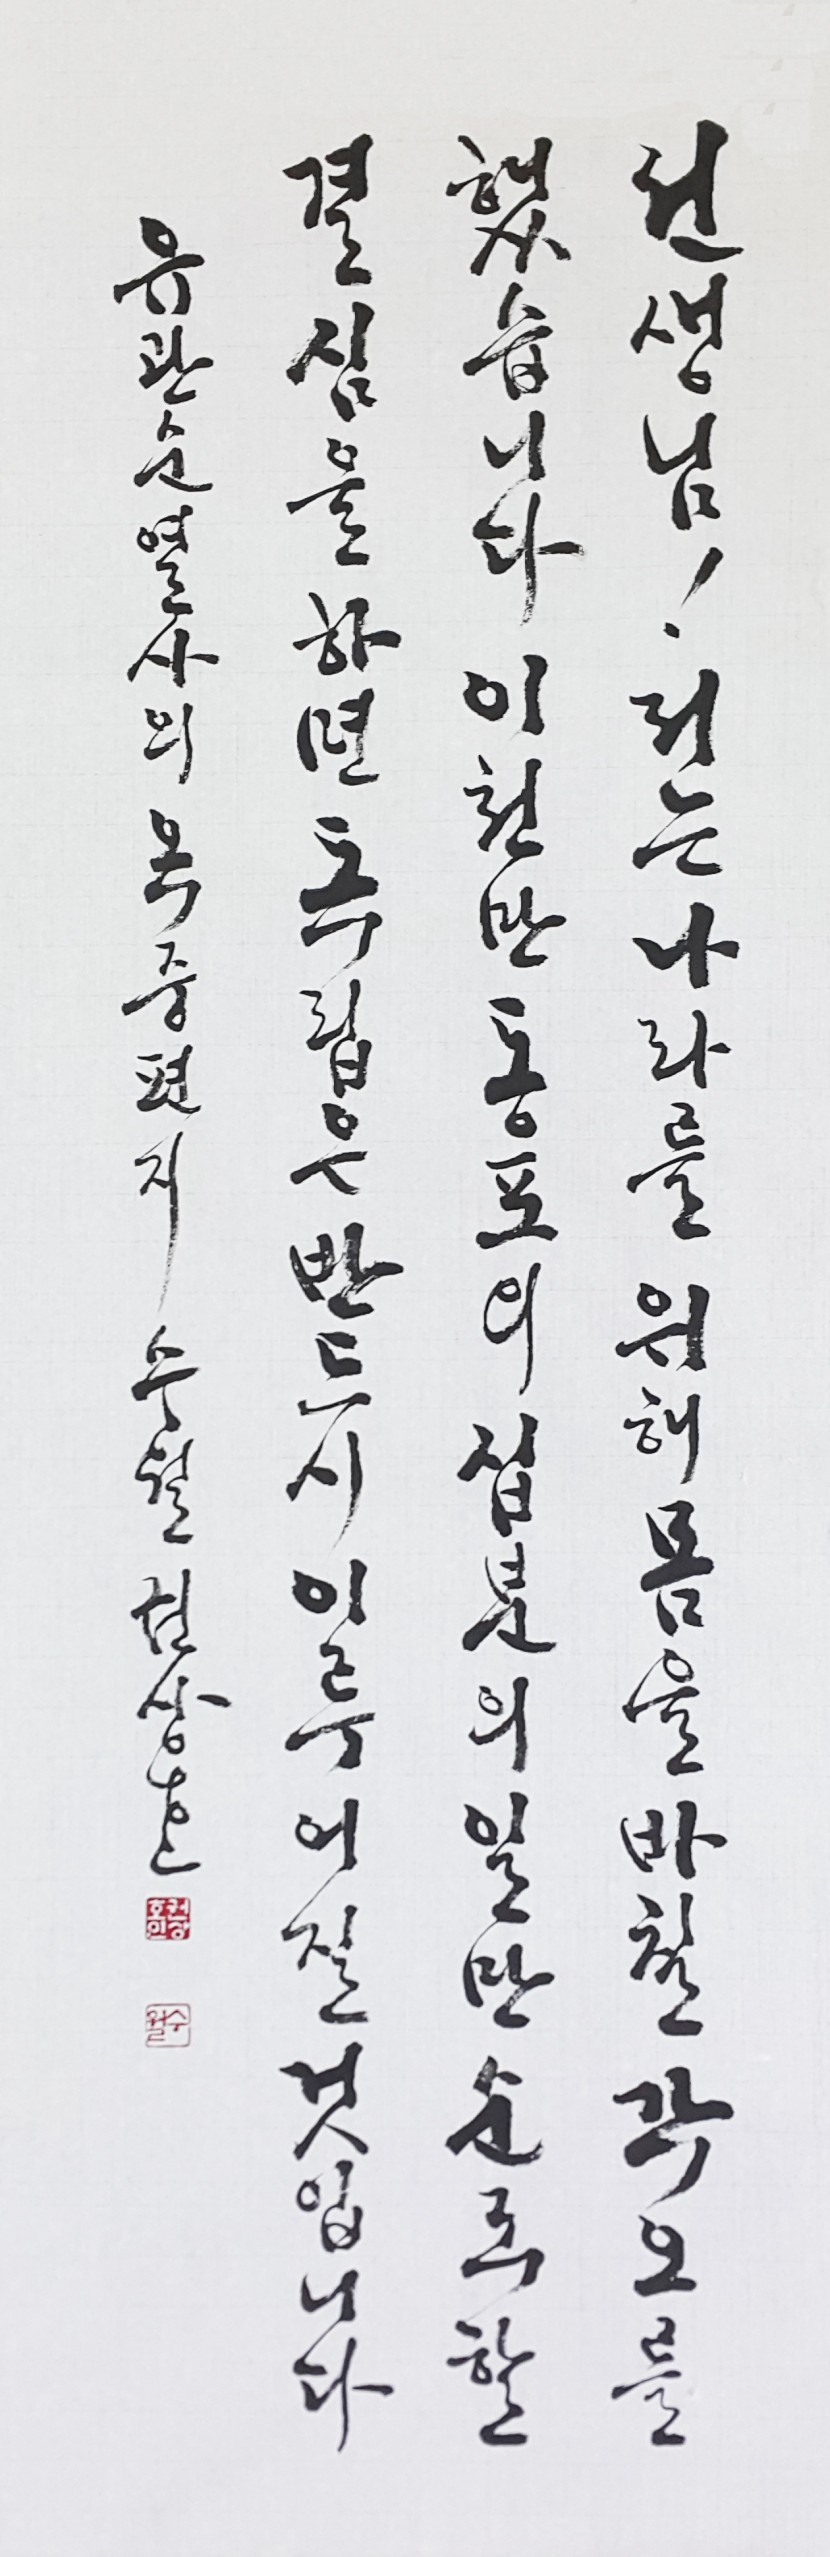 선생님! 저는 나라를 위해 몸을 바칠 각오를
했습니다 이천만 동포의 십분의 일만 순국할
결심을 하면 독립은 반드시 이루어질 것입니다
유관순 열사의 옥중편지 수월
수월